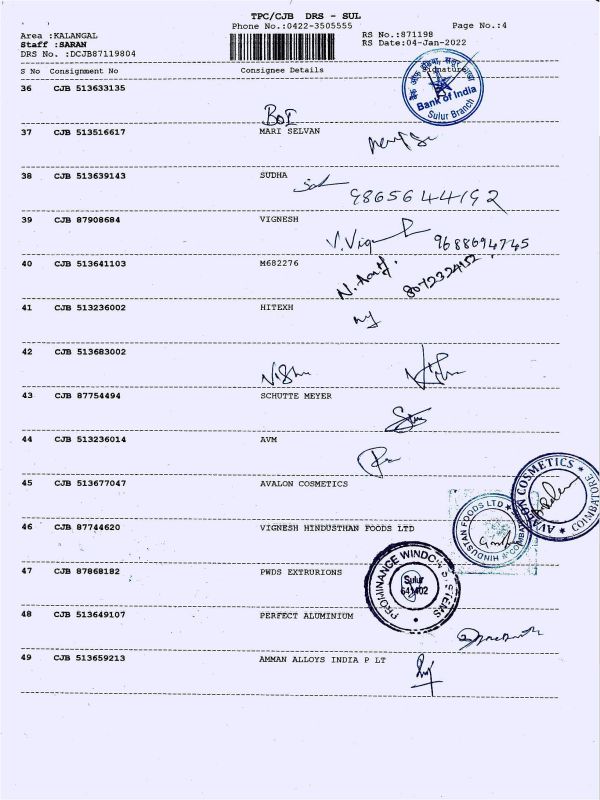 TPC/CJB DRS - SUL
Phone No.:0422-3505555 Page No.:4
Area :KALANGAL RS No.:871198
Staff :SARAN RS Date:04-Jan-2022
DRS No. :DCJB87119804
S No Consignment No Consignee Details Signature
36 CJB 513633135
BOI
Bank of India
Sulur Branch
37 CJB 513516617 MARI SELVAN
38 CJB 513639143 SUDHA
9865644192
39 CJB 87908684 VIGNESH
9688694745
40 CJB 513641103 M682276
8072324152
41 CJB 513236002 HITEXH
42 CJB 513683002
43 CJB 87754494 SCHUTTE MEYER
44 CJB 513236014 AVM
45 CJB 513677047 AVALON COSMETICS
AVALON COSMETICS ★ COIMBATORE
46 CJB 87744620 VIGNESH HINDUSTHAN FOODS LTD
HINDUSTAN FOODS LTD
47 CJB 87868182 PWDS EXTRURIONS
PROMINANCE WINDOW SYSTEMS
Sulur
641402
48 CJB 513649107 PERFECT ALUMINIUM
49 CJB 513659213 AMMAN ALLOYS INDIA P LT